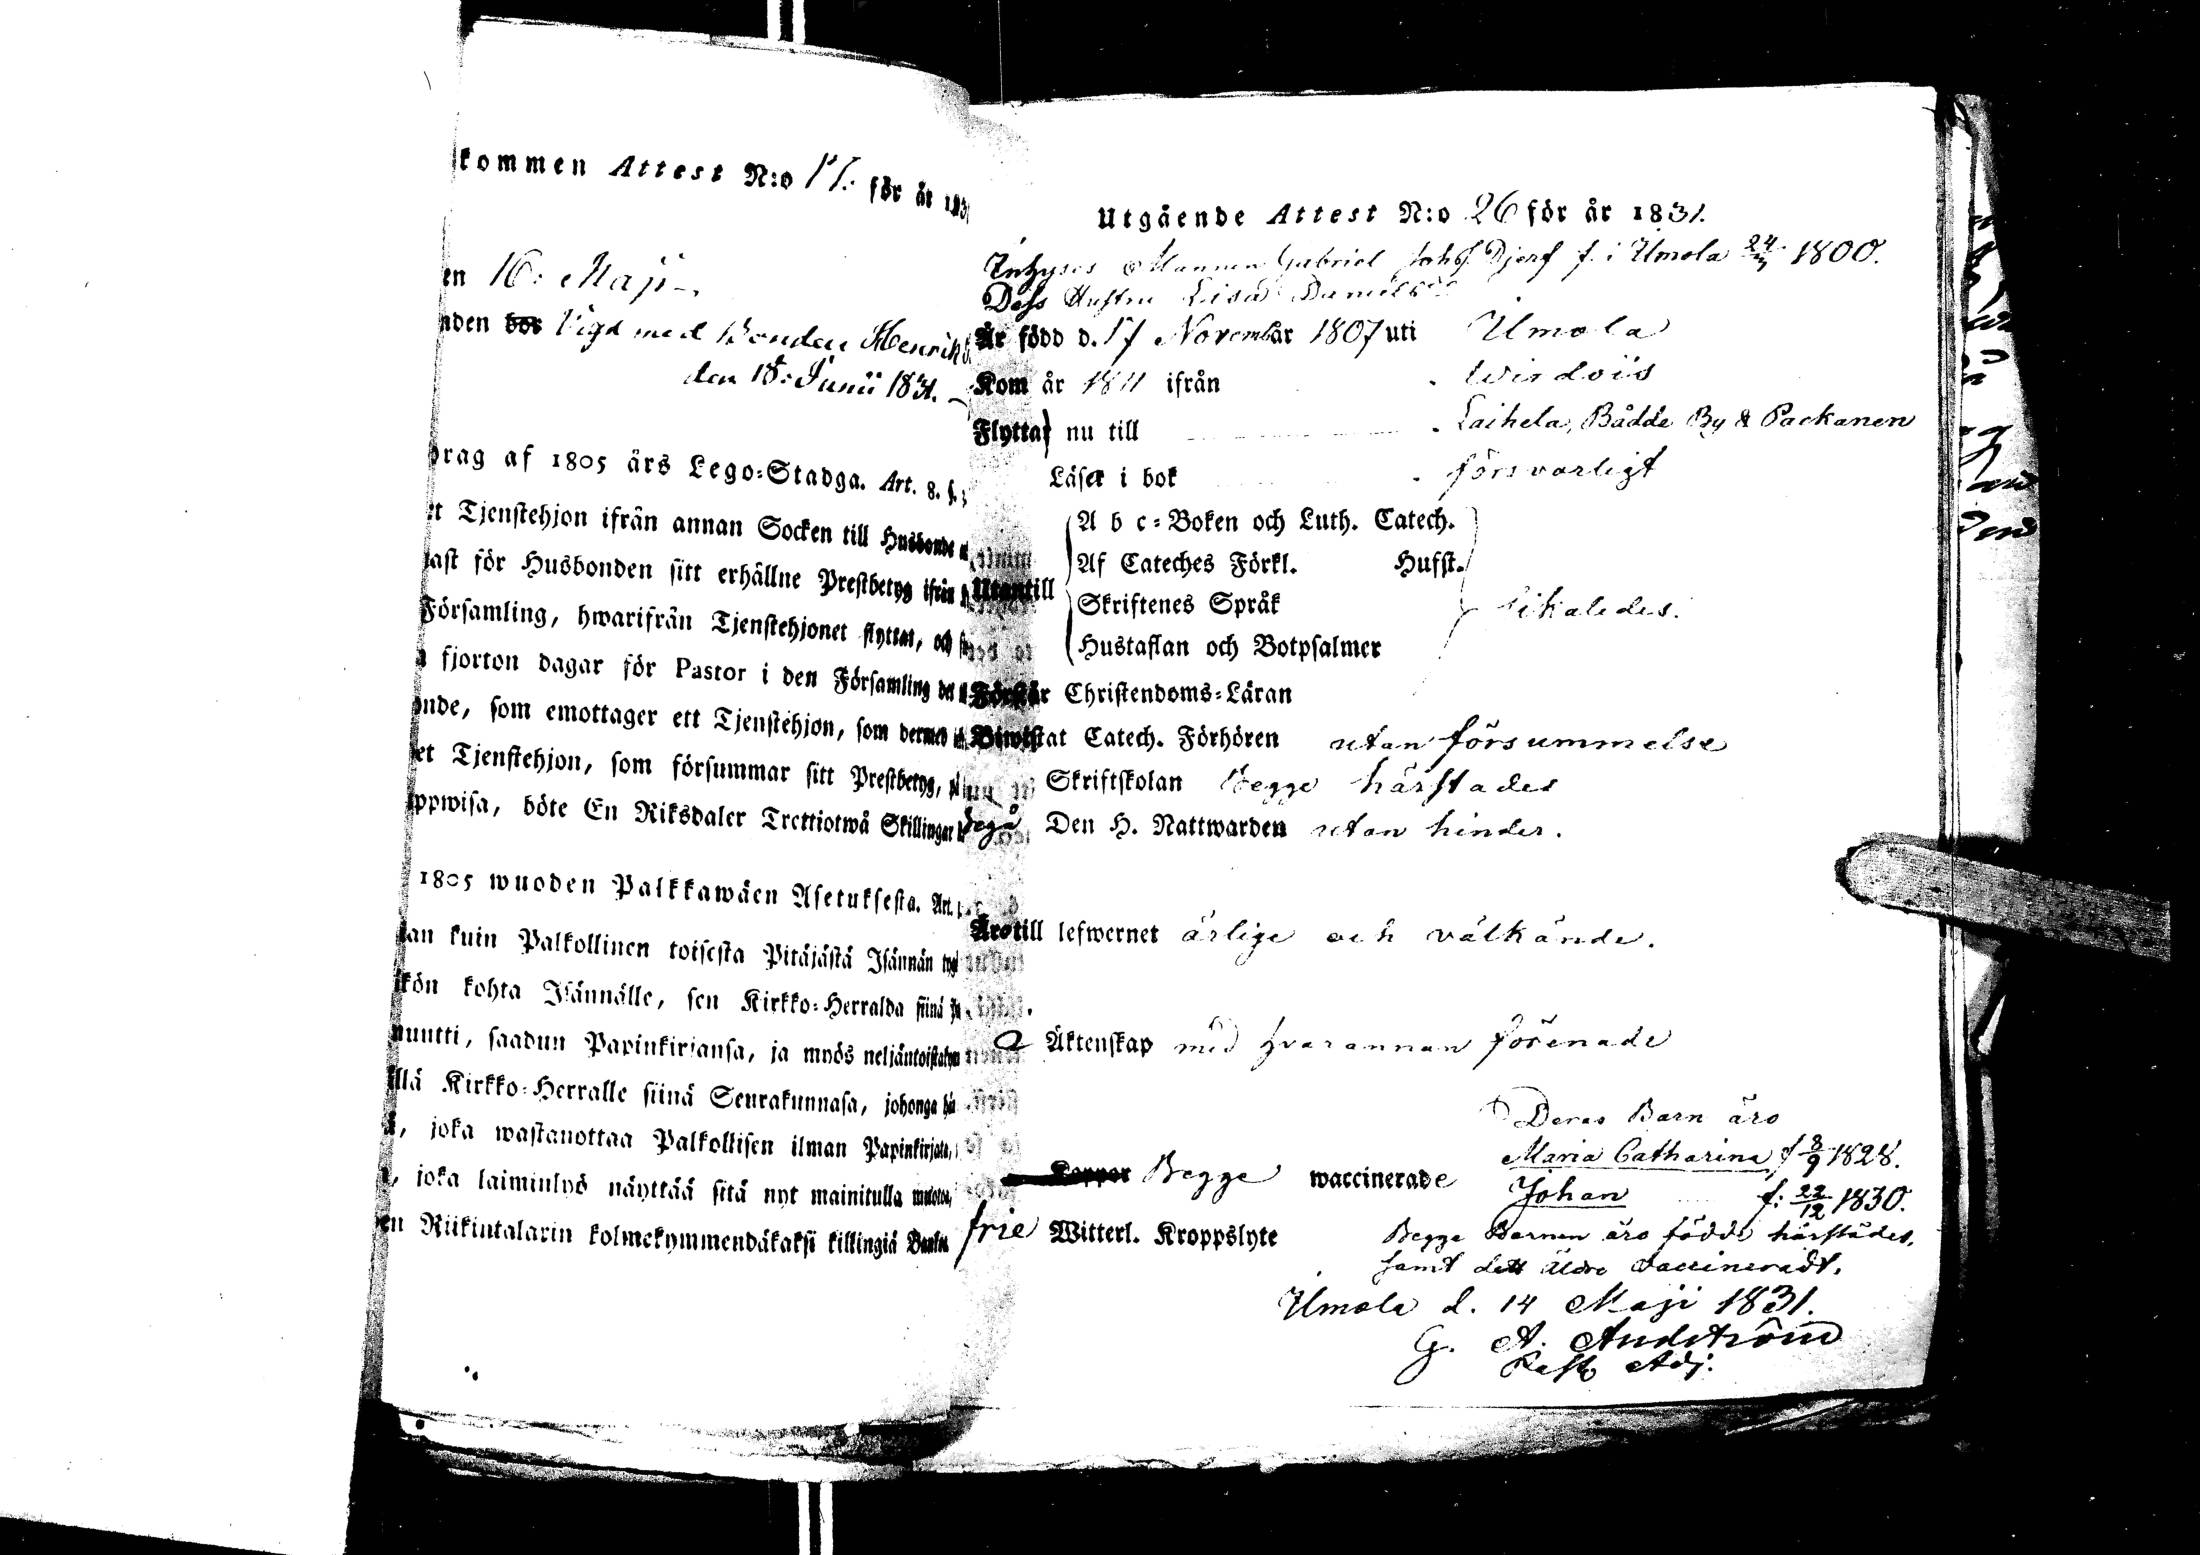 kommen Attest N:o 17. för år 183
en 16: Maji
nden bor Vigd med Bonden Henrik
den 18: Junii 1831.
drag af 1805 års Lego-Stadga. Art. 8. §.
et Tjenstehjon ifrån annan Socken till Husbonde
ast för Husbonden sitt erhållne Prestbetyg ifrån
Församling, hwarifrån Tjenstehjonet flyttat, och
fjorton dagar för Pastor i den Församling det
onde, som emottager ett Tjenstehjon, som dermed
et Tjenstehjon, som försummar sitt Prestbetyg,
uppwisa, böte En Riksdaler Trettiotwå Skillingar
1805 wuoden Palkkawäen Asetuksesta. Art.
an kuin Palkollinen toisesta Pitäjästä Isännän
kön kohta Isännälle, sen Kirkko-Herralda siinä
muutti, saadun Papinkirjansa, ja myös neljäntoistakym
llä Kirkko-Herralle siinä Seurakunnasa, johonga hän
ä, joka wastanottaa Palkollisen ilman Papinkirjata,
, joka laiminlyö näyttää sitä nyt mainitulla muotoa,
en Riikintalarin kolmekymmendäkaksi killingiä Banko
Utgående Attest N:o 26 för år 1831.
Inhyses Mannen Gabriel Johs. Djerf f. i Ilmola 24/ 1800.
Dess Hustru Lisa Danielsd.
Är född d. 17 Novembär 1807 uti Ilmola
Kom år 1811 ifrån Wirdois
Flytta nu till Laihela, Bådde By & Packanen
Läser i bok försvarligt
A b c-Boken och Luth. Catech.
Af Cateches Förkl. Hufst.
Utantill
Skriftenes Språk likaledes.
Hustaflan och Botpsalmer
Förstår Christendoms-Läran
Biwistat Catech. Förhören utan försummelse
Skriftskolan Begge härstädes
Begå Den H. Nattwarden utan hinder.
Äro till lefwernet ärlige och välkände.
Äktenskap med hvarannan förenade
Deras Barn äro
Maria Catharina f 8/9 1828.
Koppor Begge waccinerade Johan f: 22/12 1830.
frie Witterl. Kroppslyte Begge Barnen äro födde härstädes,
samt dett äldre vaccineradt.
Ilmola d. 14 Maji 1831.
G. A.
Adj: